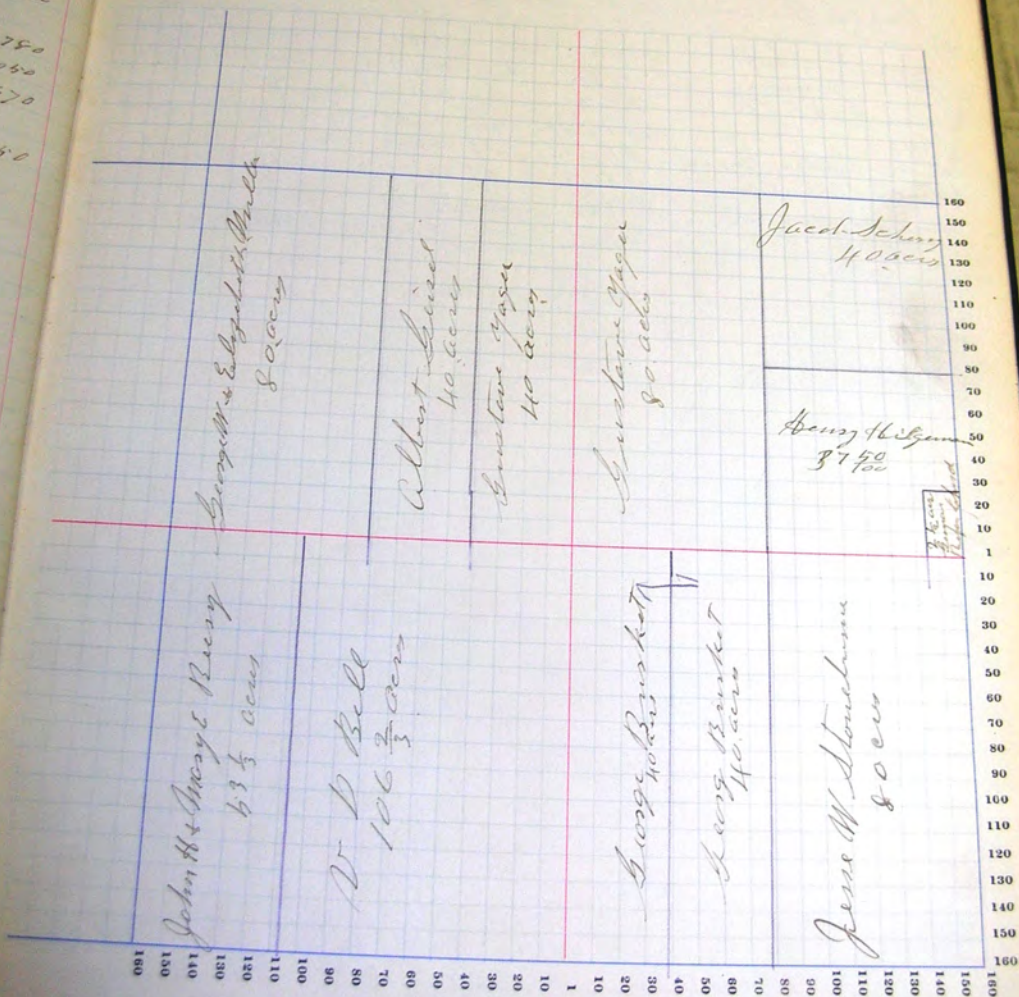 780
George W & Elizabeth
80 acres
Albert
40 acres
Gustave Yager
40 acres
Gustave Yager
80 acres
Jacob
40 acres
Henry Hilgeman
37 50/100
John H & Mary E Bury
53 1/3 acres
V D Bell
106 2/3 acres
George Burket
40 acres
Georg Burket
40 acres
Jesse W. Stoneburner
80 acrs
160
150
140
130
120
110
100
90
80
70
60
50
40
30
20
10
1
10
20
30
40
50
60
70
80
90
100
110
120
130
140
150
160
160
150
140
130
120
110
100
90
80
70
60
50
40
30
20
10
1
10
20
30
40
50
60
70
80
90
100
110
120
130
140
150
160